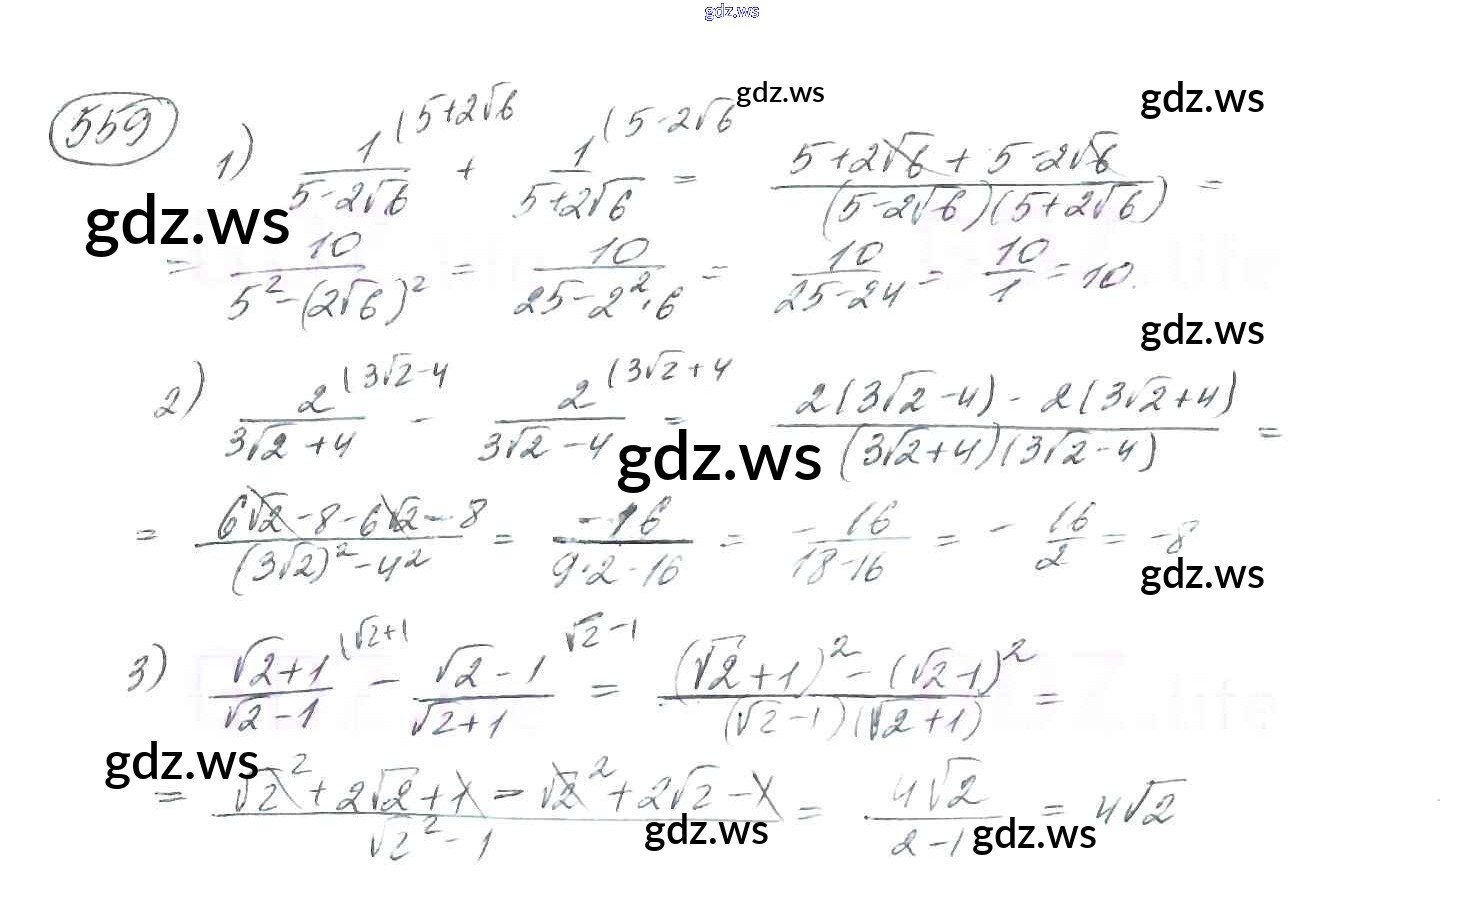 gdz.ws
559
1) 1/(5-2√6) (5+2√6 + 1/(5+2√6) (5-2√6 = (5+2√6+5-2√6)/((5-2√6)(5+2√6)) =
gdz.ws gdz.ws
gdz.ws
= 10/(5²-(2√6)²) = 10/(25-2²·6) = 10/(25-24) = 10/1 = 10.
gdz.ws
2) 2/(3√2+4) (3√2-4 - 2/(3√2-4) (3√2+4 = (2(3√2-4)-2(3√2+4))/((3√2+4)(3√2-4)) =
gdz.ws
= (6√2-8-6√2-8)/((3√2)²-4²) = -16/(9·2-16) = -16/(18-16) = -16/2 = -8
gdz.ws
3) (√2+1)/(√2-1) (√2+1 - (√2-1)/(√2+1) √2-1 = ((√2+1)²-(√2-1)²)/((√2-1)(√2+1)) =
gdz.ws
= (√2²+2√2+1-√2²+2√2-1)/(√2²-1) = 4√2/(2-1) = 4√2
gdz.ws gdz.ws